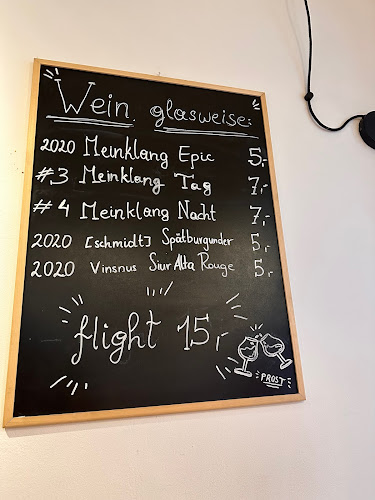 Wein glasweise:
2020 Meinklang Epic 5,-
#3 Meinklang Tag 7,-
#4 Meinklang Nacht 7,-
2020 [schmidt] Spätburgunder 5,-
2020 Vinsnus Siur Alta Rouge 5,-
flight 15,-
PROST